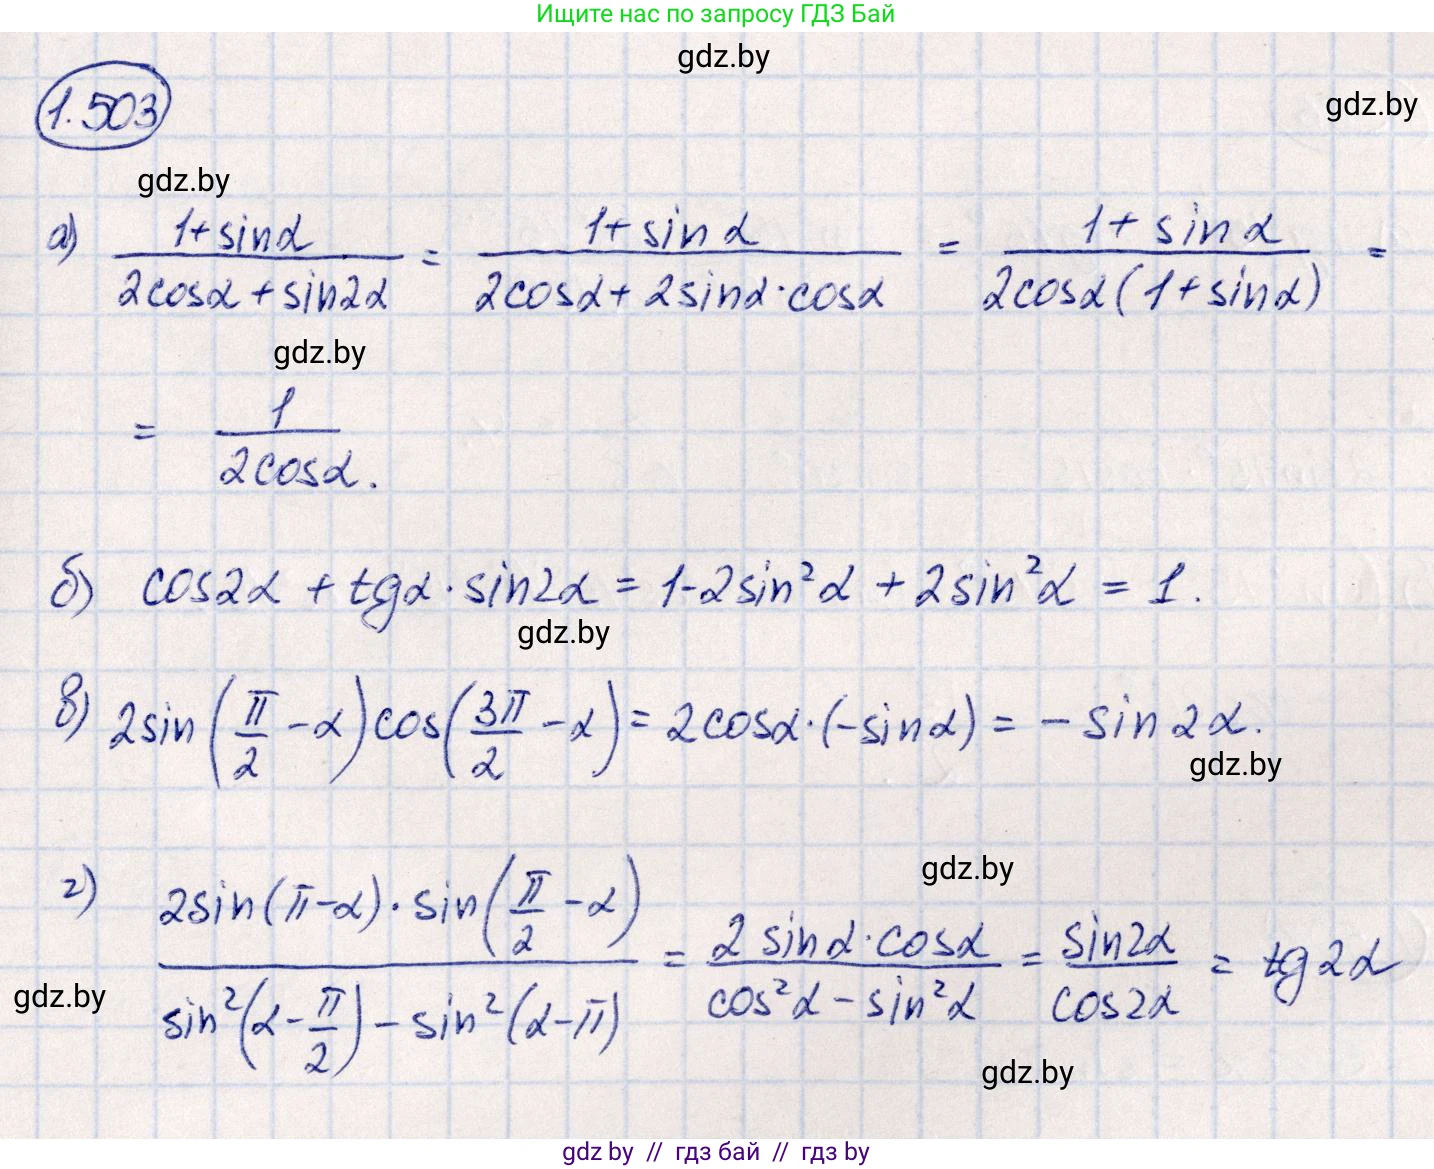 Ищите нас по запросу ГДЗ Бай
gdz.by
gdz.by
1.503
gdz.by
а) (1+sinα)/(2cosα+sin2α) = (1+sinα)/(2cosα+2sinα·cosα) = (1+sinα)/(2cosα(1+sinα)) =
gdz.by
= 1/(2cosα).
б) cos2α + tgα·sin2α = 1-2sin²α + 2sin²α = 1.
gdz.by
в) 2sin(π/2 - α)cos(3π/2 - α) = 2cosα·(-sinα) = -sin2α.
gdz.by
gdz.by
г) (2sin(π-α)·sin(π/2 - α))/(sin²(α - π/2) - sin²(α-π)) = (2sinα·cosα)/(cos²α - sin²α) = sin2α/cos2α = tg2α
gdz.by
gdz.by
gdz.by // гдз бай // гдз by